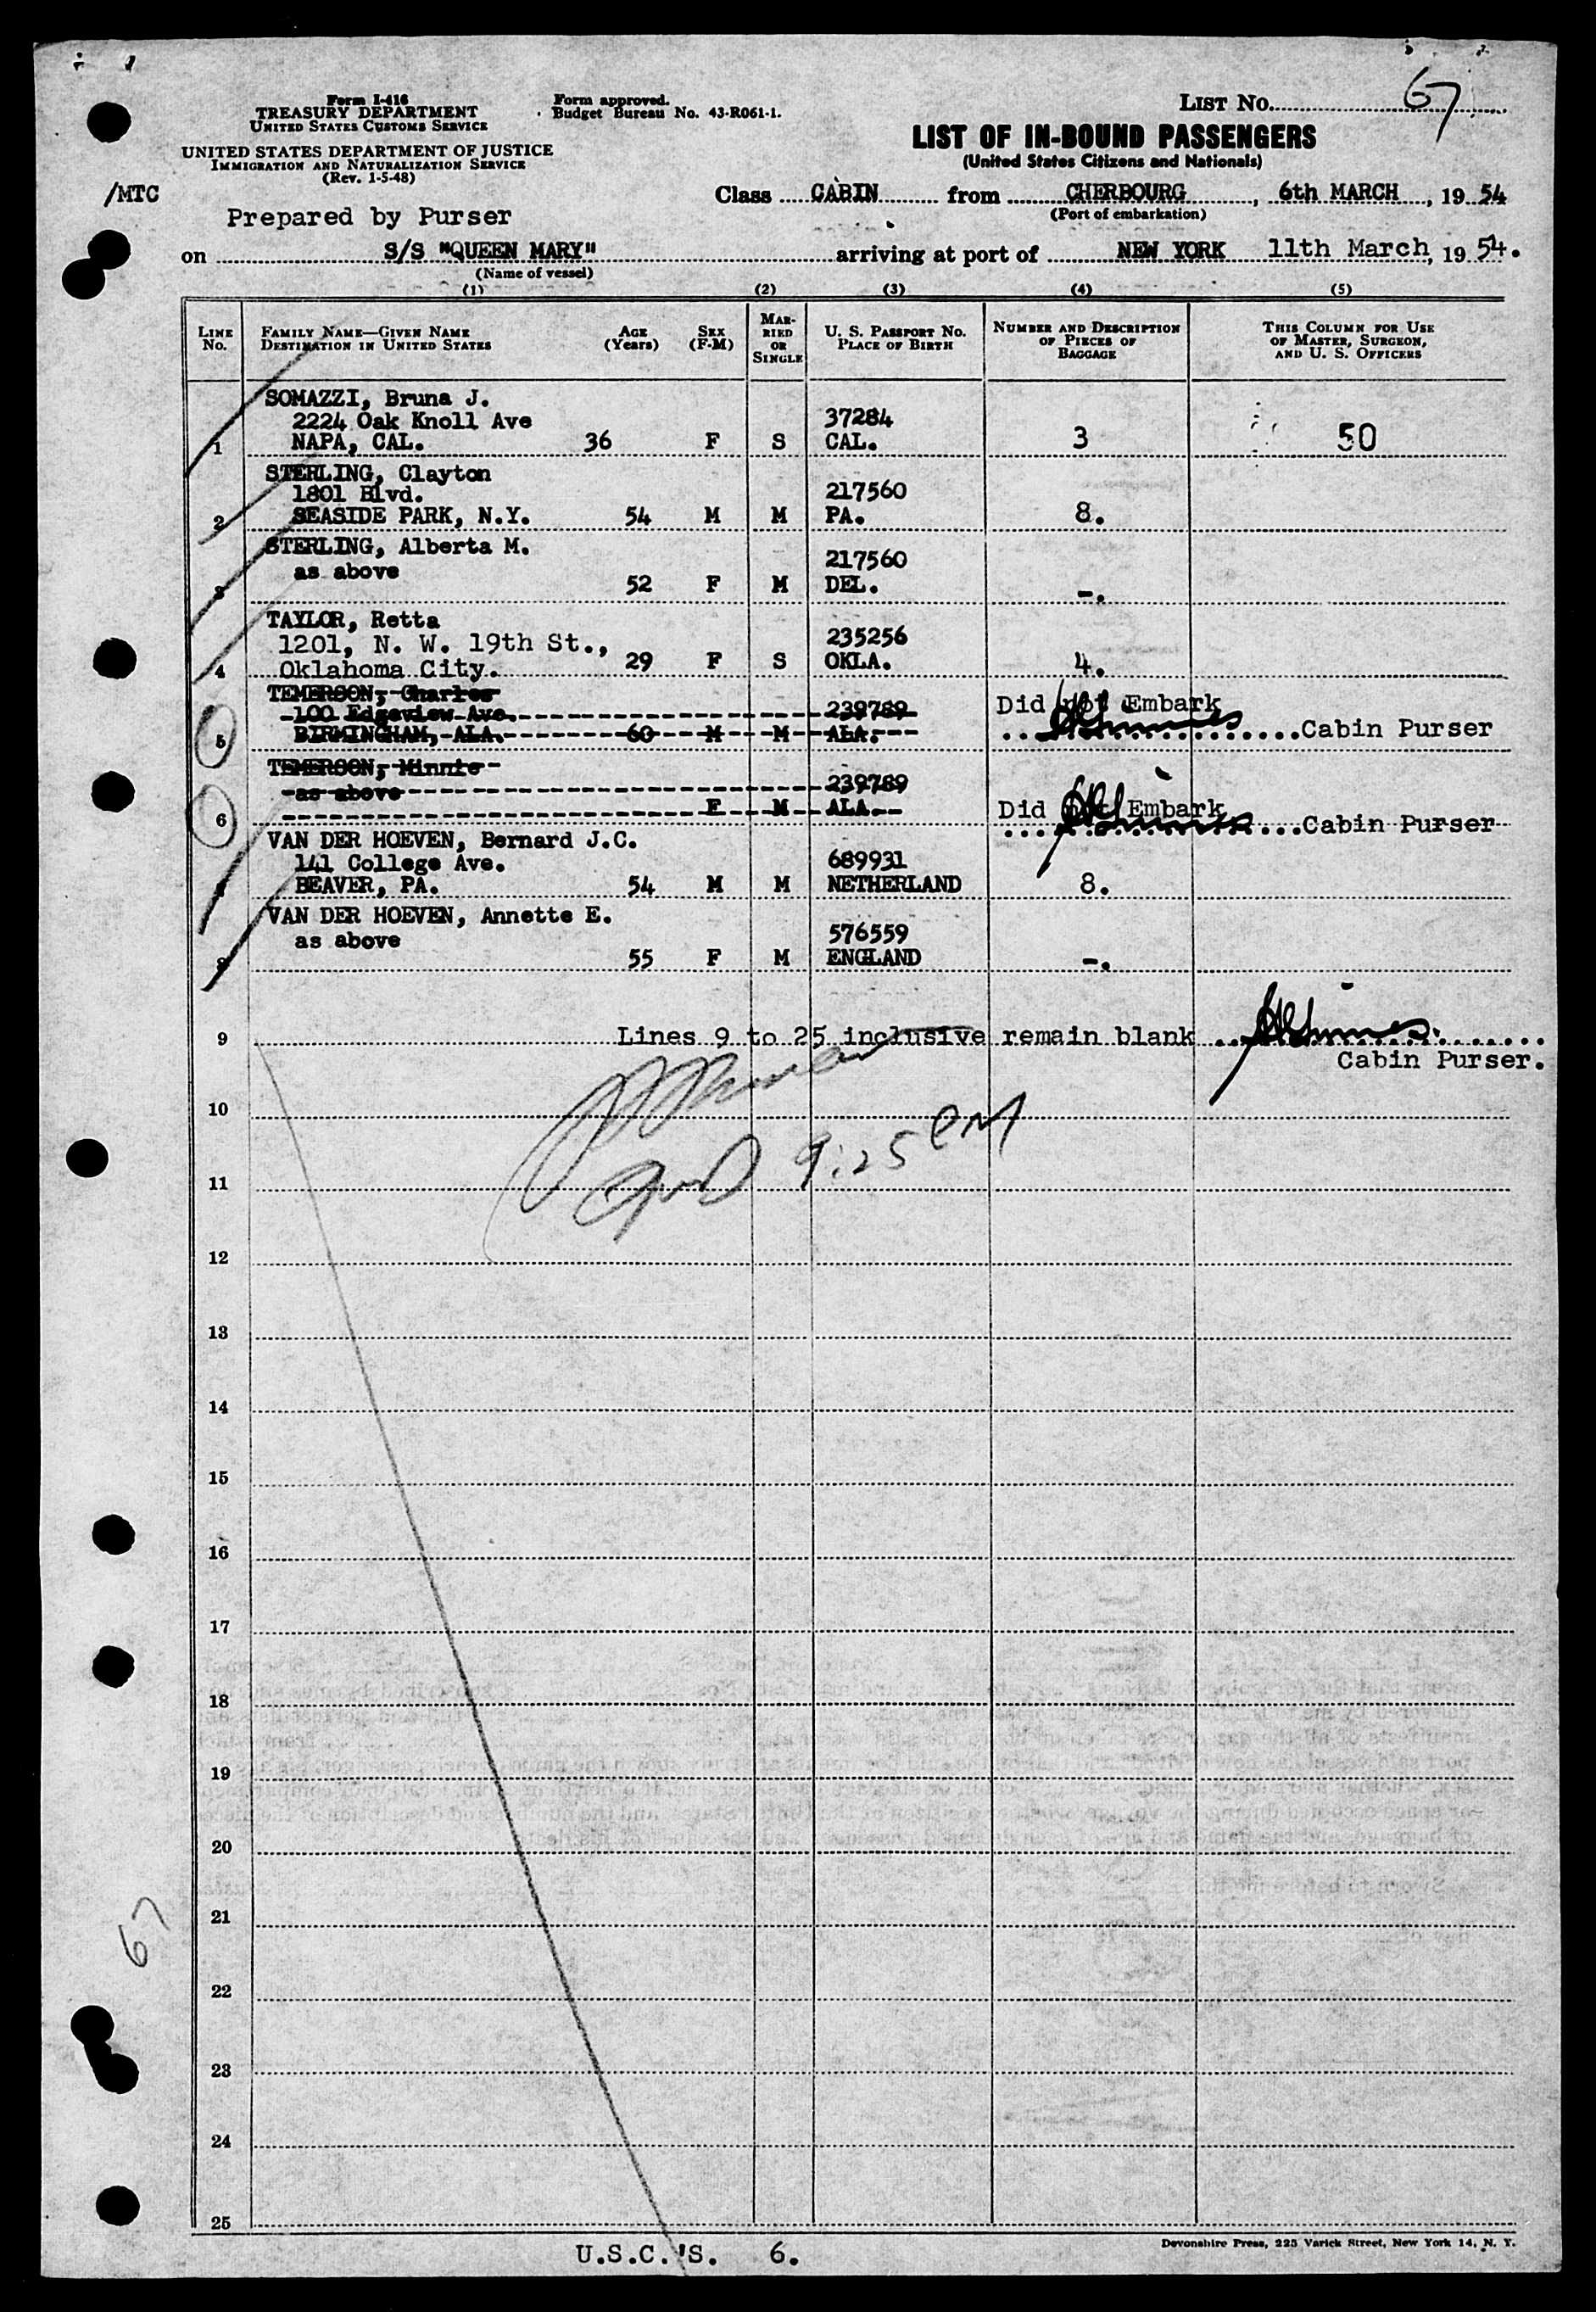 Form I-416
TREASURY DEPARTMENT
UNITED STATES CUSTOMS SERVICE
UNITED STATES DEPARTMENT OF JUSTICE
IMMIGRATION AND NATURALIZATION SERVICE
(Rev. 1-5-48)
Form approved.
Budget Bureau No. 43-R061-1.
LIST NO. 67
LIST OF IN-BOUND PASSENGERS
(United States Citizens and Nationals)
/MTC
Class CABIN from CHERBOURG, 6th MARCH, 1954
(Port of embarkation)
Prepared by Purser
on S/S "QUEEN MARY" arriving at port of NEW YORK 11th March, 1954.
(Name of vessel)
(1) (2) (3) (4) (5)
LINE NO.
FAMILY NAME—GIVEN NAME
DESTINATION IN UNITED STATES
AGE (Years)
SEX (F-M)
MARRIED OR SINGLE
U. S. PASSPORT NO.
PLACE OF BIRTH
NUMBER AND DESCRIPTION OF PIECES OF BAGGAGE
THIS COLUMN FOR USE OF MASTER, SURGEON, AND U. S. OFFICERS
SOMAZZI, Bruna J.
2224 Oak Knoll Ave 37284
1 NAPA, CAL. 36 F S CAL. 3 50
STERLING, Clayton
1801 Blvd. 217560
2 SEASIDE PARK, N.Y. 54 M M PA. 8.
STERLING, Alberta M.
as above 217560
3 52 F M DEL. -.
TAYLOR, Retta
1201, N. W. 19th St., 235256
4 Oklahoma City. 29 F S OKLA. 4.
TEMERSON, Charles
100 Edgeview Ave. 239789 Did not Embark
5 BIRMINGHAM, ALA. 60 M M ALA. Cabin Purser
TEMERSON, Minnie
as above 239789
6 F M ALA. Did not Embark Cabin Purser
VAN DER HOEVEN, Bernard J.C.
141 College Ave. 689931
7 BEAVER, PA. 54 M M NETHERLAND 8.
VAN DER HOEVEN, Annette E.
as above 576559
8 55 F M ENGLAND -.
9 Lines 9 to 25 inclusive remain blank
Cabin Purser.
10
9:25 PM
11
12
13
14
15
16
17
18
19
20
21
67
22
23
24
25
U.S.C.'S. 6.
Devonshire Press, 225 Varick Street, New York 14, N. Y.